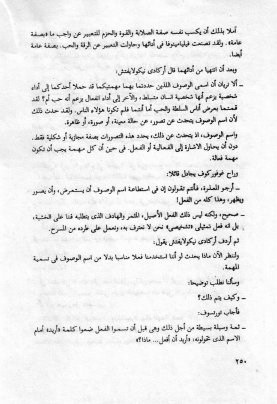 أملا بذلك أن يكسب نفسه صفة الصلابة والقوة والحزم للتعبير عن واجب ما «بصفة
عامة». ولقد تصنعت فيليامينوفا في أدائها وحاولت التعبير عن الرقة والحب، بصفة عامة
أيضا.
وبعد أن انتهيا من أدائهما قال أركادي نيكولايفتش:
ـ ألا تريان أن اسمي الوصوف اللذين حددتما بهما مهمتيكما قد حملا أحدكما إلى أداء
شخصية يزعم أنها شخصية انسان متسلط، والآخر إلى أداء انفعال يزعم أنه حب أم؟ لقد
قمتما بعرض أناس السلطة والحب أما أنتما فلم تكونا هؤلاء الناس. ولقد حدث ذلك
لأن اسم الوصوف يتحدث عن تصور، عن حالة معينة، أو صورة، أو ظاهرة.
واسم الوصوف، اذ يتحدث عن ذلك، يحدد هذه التصورات بصفة مجازية أو شكلية فقط،
دون أن يحاول الاشارة إلى الفعالية أو الفعل. في حين أن كل مهمة يجب أن تكون
مهمة فعالة.
وراح غوفوركوف يجادل قائلا:
ـ أرجو المعذرة، فأنتم تقولون إن في استطاعة اسم الوصوف أن يستعرض، وأن يصور
ويظهر، وهذا كله من الفعل!
ـ صحيح، ولكنه ليس ذلك الفعل الأصيل، المثمر والهادف الذي يتطلبه فنا على الخشبة،
بل انه فعل تمثيلي «تشخيصي» نحن لا نعترف به، ونعمل على طرده من المسرح.
ثم أردف أركادي نيكولايفتش يقول:
ولننظر الآن ماذا يحدث لو أننا استخدمنا فعلا مناسبا بدلا من اسم الوصوف في تسمية
المهمة.
وسألنا نطلب توضيحا:
ـ وكيف يتم ذلك؟
فأجاب تورتسوف:
ـ ثمة وسيلة بسيطة من أجل ذلك وهي قبل أن تسموا الفعل ضعوا كلمة «أريد» أمام
الاسم الذي تحولونه: «أريد أن أفعل... ماذا؟»
٢٥٠